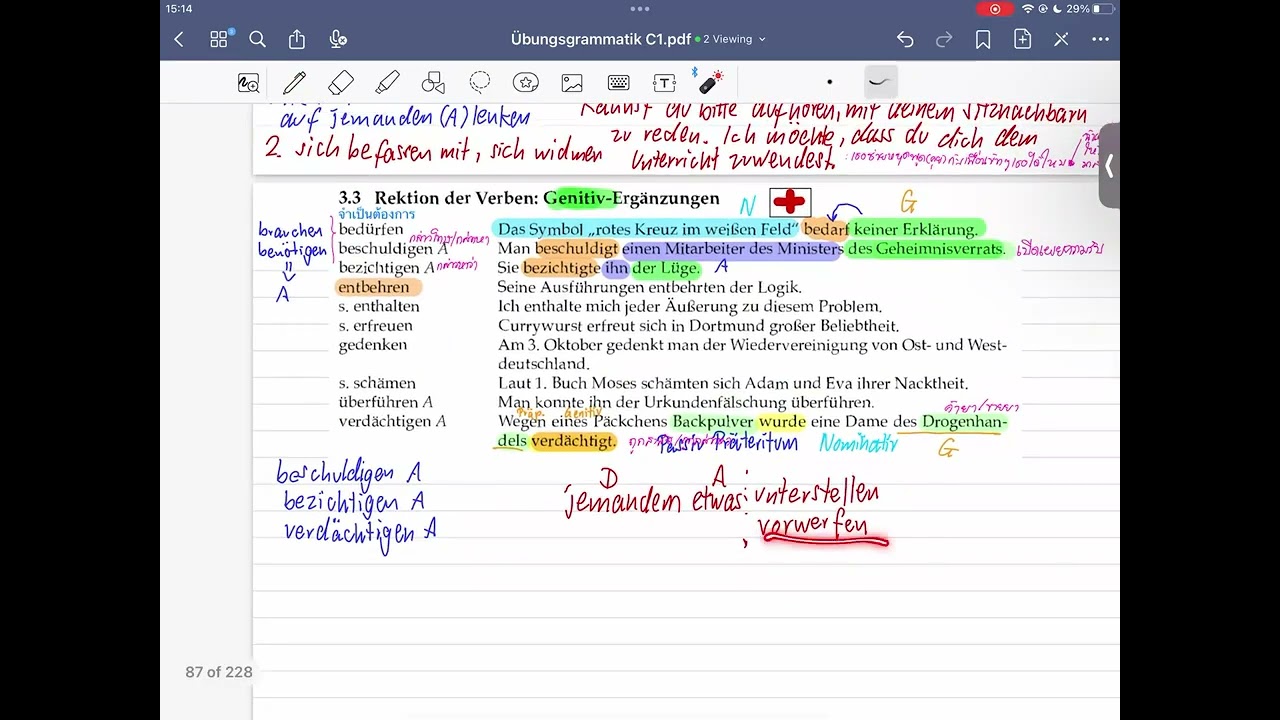 15:14
29%
Übungsgrammatik C1.pdf • 2 Viewing
auf jemanden (A) lenken
Kannst du bitte aufhören, mit deinem Sitznachbarn
zu reden. Ich möchte, dass du dich dem
2. sich befassen mit, sich widmen
Unterricht zuwendest.
3.3 Rektion der Verben: Genitiv-Ergänzungen
N
G
จำเป็นต้องการ
brauchen
bedürfen Das Symbol „rotes Kreuz im weißen Feld" bedarf keiner Erklärung.
benötigen
beschuldigen A Man beschuldigt einen Mitarbeiter des Ministers des Geheimnisverrats.
bezichtigen A กล่าวหาว่า Sie bezichtigte ihn der Lüge. A
A
entbehren Seine Ausführungen entbehrten der Logik.
s. enthalten Ich enthalte mich jeder Äußerung zu diesem Problem.
s. erfreuen Currywurst erfreut sich in Dortmund großer Beliebtheit.
gedenken Am 3. Oktober gedenkt man der Wiedervereinigung von Ost- und West-
deutschland.
s. schämen Laut 1. Buch Moses schämten sich Adam und Eva ihrer Nacktheit.
überführen A Man konnte ihn der Urkundenfälschung überführen.
Präp. Genitiv
verdächtigen A Wegen eines Päckchens Backpulver wurde eine Dame des Drogenhan-
dels verdächtigt. Passiv Präteritum Nominativ G
beschuldigen A
bezichtigen A
verdächtigen A
D A
jemandem etwas: unterstellen
vorwerfen
87 of 228